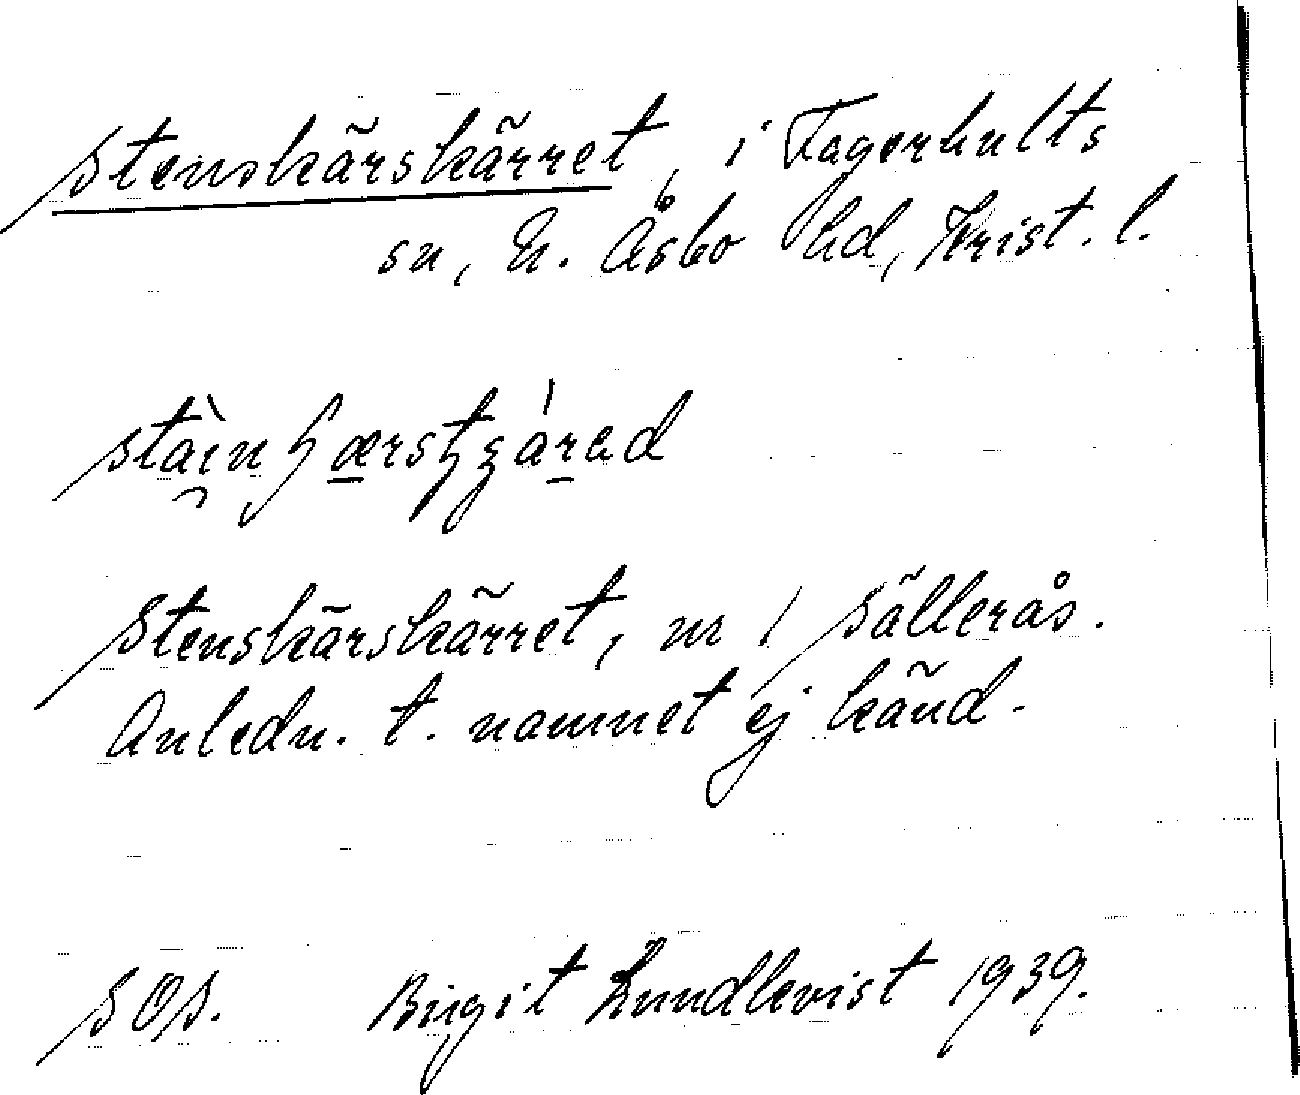 Stenskärskärret, i Fagerhults
sn, N. Åsbo hd, Krist. l.
Stenskärskärret, nr 1 Sällerås.
Anledn. t. namnet ej känd.
SOS. Birgit Lundkvist 1939.